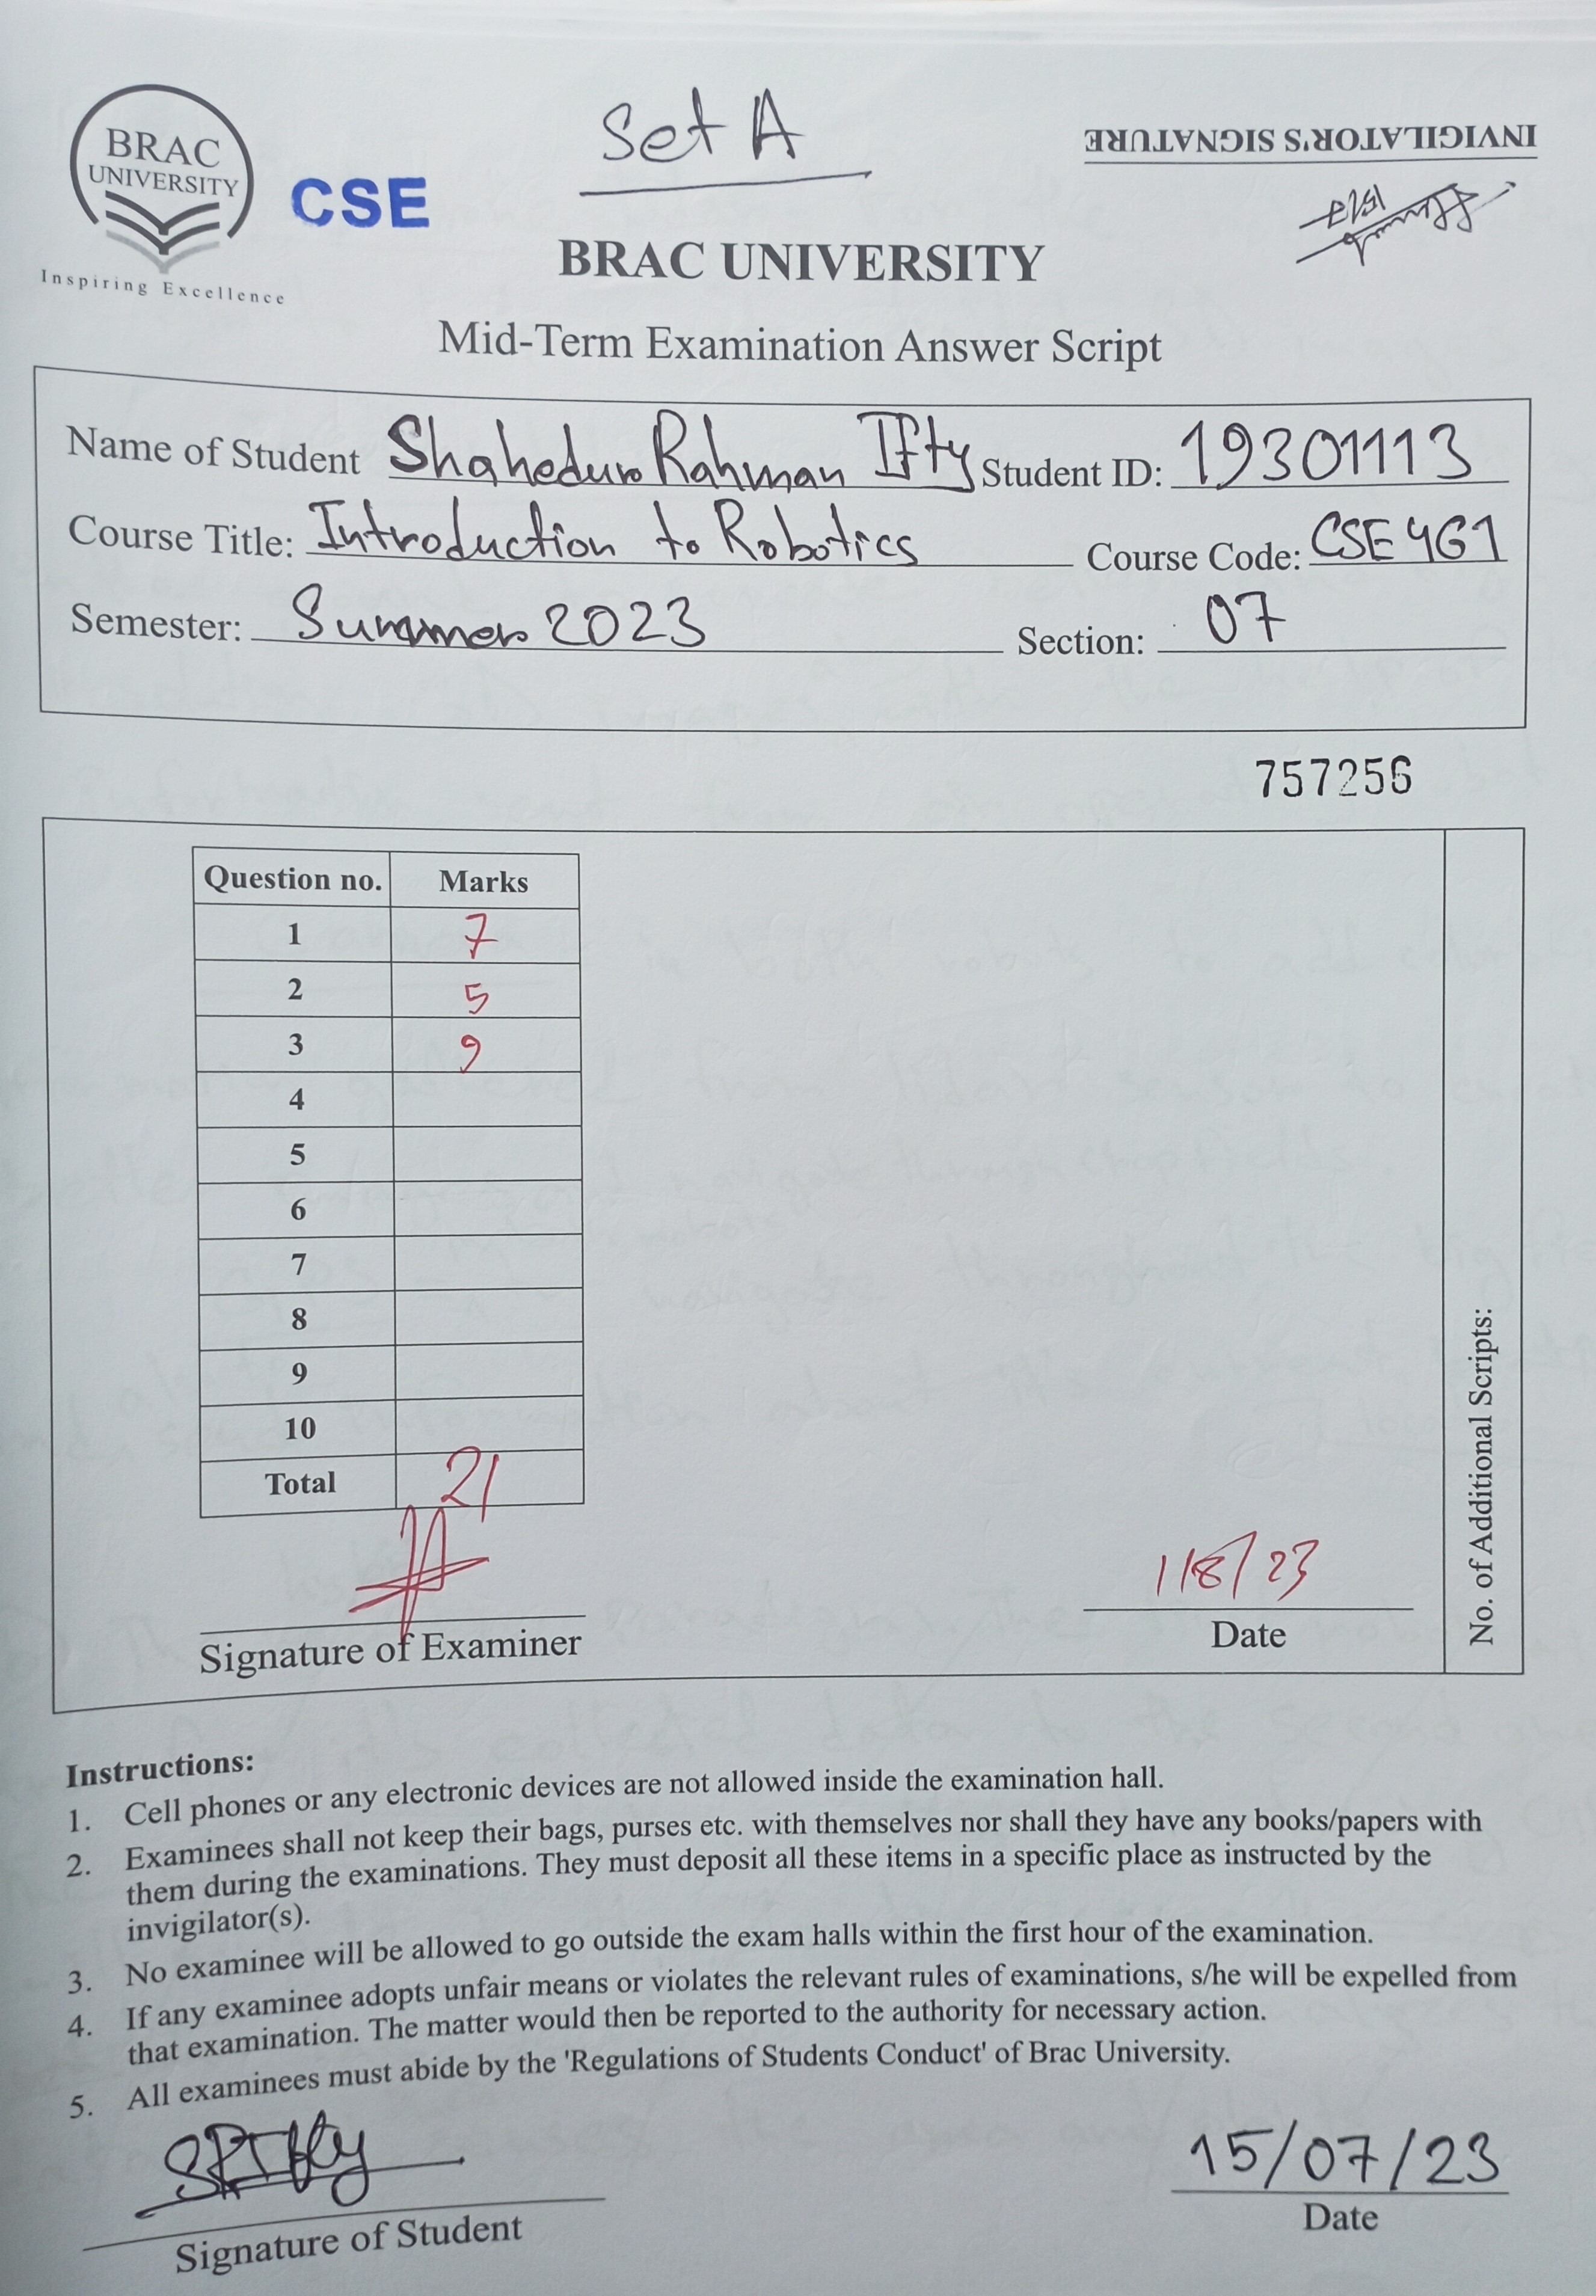 Set A
INVIGILATOR'S SIGNATURE
BRAC
UNIVERSITY
Inspiring Excellence
CSE
BRAC UNIVERSITY
Mid-Term Examination Answer Script
Name of Student Shahedur Rahman Ifty Student ID: 19301113
Course Title: Introduction to Robotics Course Code: CSE 461
Semester: Summer 2023 Section: 07
757256
Question no. Marks
1 7
2 5
3 9
4
5
6
7
8
9
10
Total 21
Signature of Examiner
1/8/23
Date
No. of Additional Scripts:
Instructions:
1. Cell phones or any electronic devices are not allowed inside the examination hall.
2. Examinees shall not keep their bags, purses etc. with themselves nor shall they have any books/papers with
them during the examinations. They must deposit all these items in a specific place as instructed by the
invigilator(s).
3. No examinee will be allowed to go outside the exam halls within the first hour of the examination.
4. If any examinee adopts unfair means or violates the relevant rules of examinations, s/he will be expelled from
that examination. The matter would then be reported to the authority for necessary action.
5. All examinees must abide by the 'Regulations of Students Conduct' of Brac University.
SRIfty
Signature of Student
15/07/23
Date